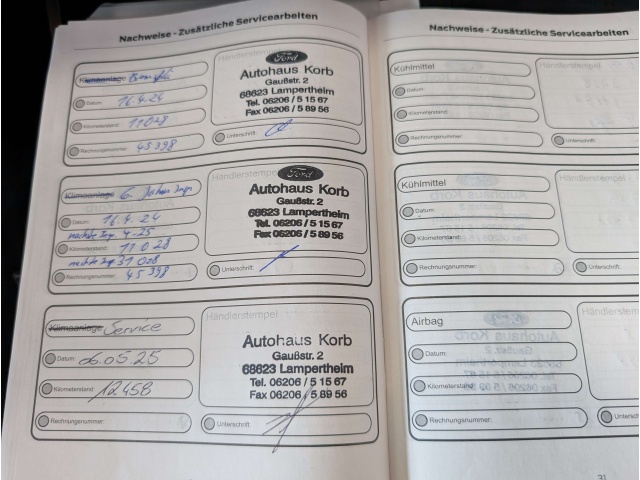 Nachweise - Zusätzliche Servicearbeiten
Klimaanlage
Datum: 16.4.24
Kilometerstand: 11028
Rechnungsnummer: 45398
Händlerstempel
Ford
Autohaus Korb
Gaußstr. 2
68623 Lampertheim
Tel. 06206 / 5 15 67
Fax 06206 / 5 89 56
Unterschrift:
Klimaanlage 6. Jahres Insp.
Datum: 16.4.24
nächste Insp. 4-25
Kilometerstand: 11028
nächste Insp 31028
Rechnungsnummer: 45398
Händlerstempel
Ford
Autohaus Korb
Gaußstr. 2
68623 Lampertheim
Tel. 06206 / 5 15 67
Fax 06206 / 5 89 56
Unterschrift:
Klimaanlage Service
Datum: 06.05.25
Kilometerstand: 12458
Rechnungsnummer:
Händlerstempel
Autohaus Korb
Gaußstr. 2
68623 Lampertheim
Tel. 06206 / 5 15 67
Fax 06206 / 5 89 56
Unterschrift:
Nachweise - Zusätzliche Servicearbeiten
Kühlmittel
Datum:
Kilometerstand:
Rechnungsnummer:
Händlerstempel
Unterschrift:
Kühlmittel
Datum:
Kilometerstand:
Rechnungsnummer:
Händlerstempel
Unterschrift:
Airbag
Datum:
Kilometerstand:
Rechnungsnummer:
Händlerstem
Unterschrift:
31